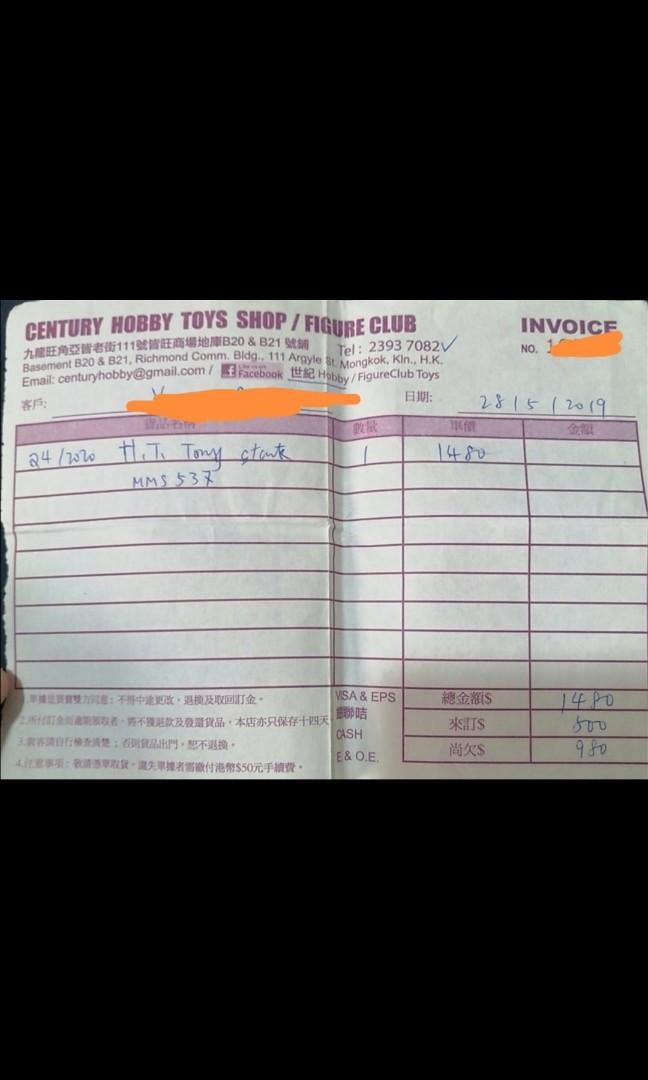 CENTURY HOBBY TOYS SHOP / FIGURE CLUB
INVOICE
九龍旺角亞皆老街111號皆旺商場地庫B20 & B21 號鋪
Tel : 2393 7082
NO. 1
Basement B20 & B21, Richmond Comm. Bldg., 111 Argyle St. Mongkok, Kln., H.K.
Email: centuryhobby@gmail.com / Facebook 世紀 Hobby / FigureClub Toys
客戶:
日期: 28/5/2019
貨品名稱 數量 單價 金額
Q4/2020 H.T. Tony stark 1 1480
MMS 537
1.單據是買賣雙方同意：不得中途更改，退換及取回訂金。
VISA & EPS
總金額$ 1480
2.所付訂金而逾期領取者，將不獲退款及發還貨品，本店亦只保存十四天
銀聯咭
來訂$ 500
3.貴客請自行檢查清楚；否則貨品出門，恕不退換。
CASH
尚欠$ 980
4.注意事項：敬請憑單取貨，遺失單據者需繳付港幣$50元手續費。
E & O.E.